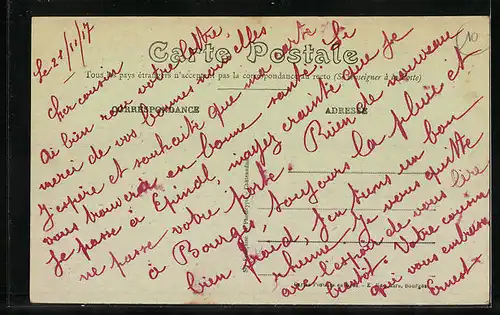 Carte Postale
Tous les pays étrangers n'acceptent pas la correspondance au recto (Se renseigner à la Poste)
CORRESPONDANCE
ADRESSE
10
Le 21/11/17
Cher cousin
Ai bien reçu votre lettre,
merci de vos bonnes nouvelles
J'espère et souhaite que ma carte
vous trouvera en bonne santé. Si
je passe à Epinal, n'ayez crainte que je
ne passe votre porte. Rien de nouveau
à Bourg, toujours la pluie et
bien froid, j'en tiens un bon
rhume. Je vous quitte
avec l'espoir de vous lire
bientôt. Votre cousin
qui vous embrasse
Ernest